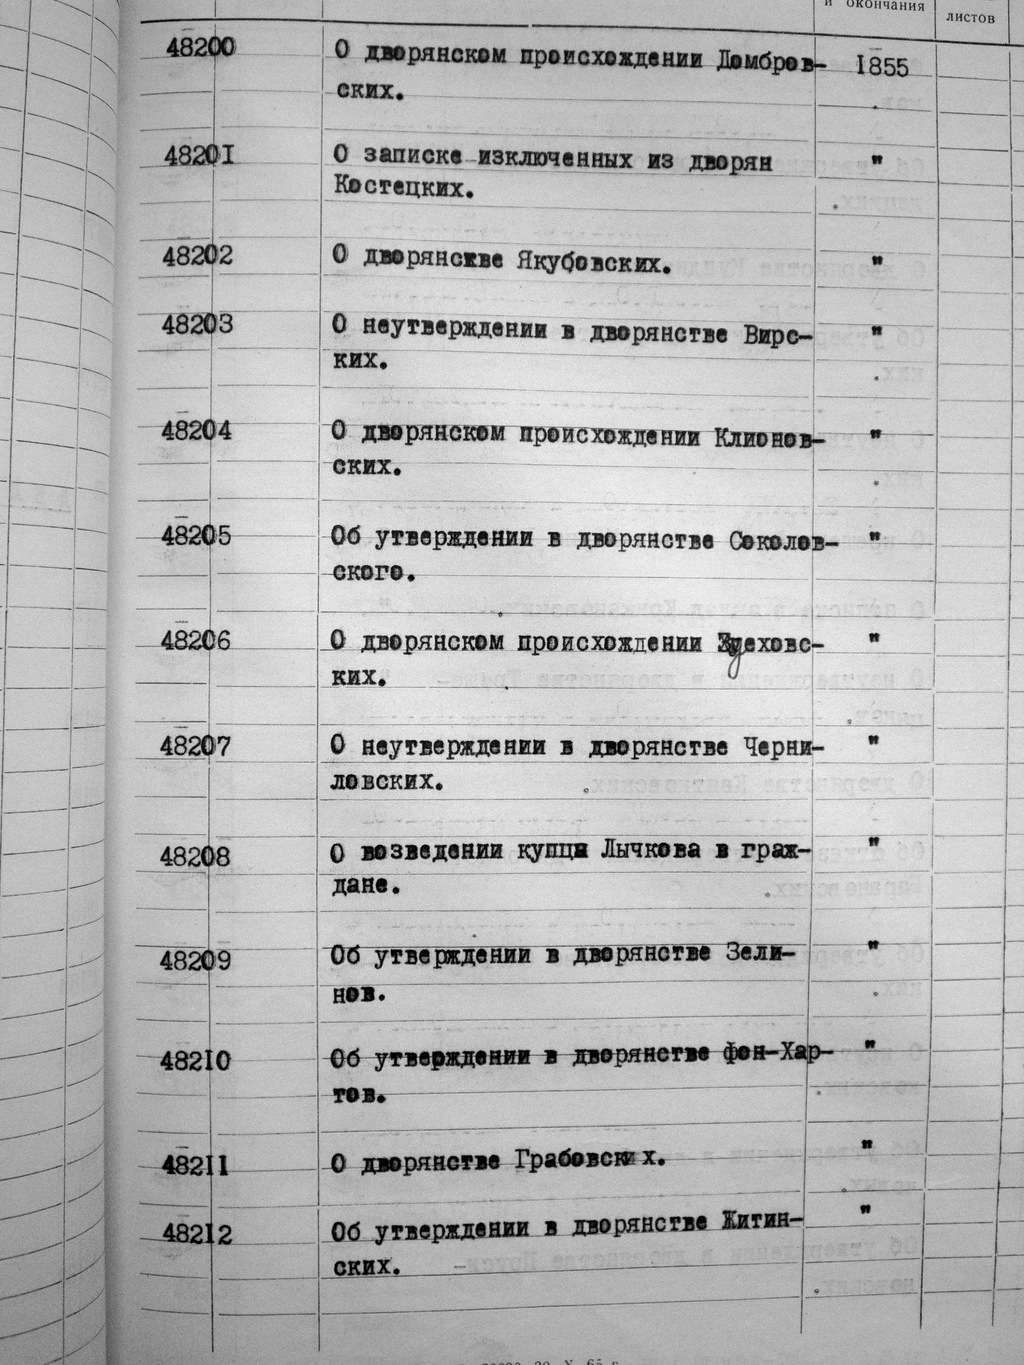 и окончания
листов
48200 О дворянском происхождении Домбров- 1855
ских.
48201 О записке изключенных из дворян "
Костецких.
48202 О дворянскве Якубовских. "
48203 О неутверждении в дворянстве Вирс- "
ких.
48204 О дворянском происхождении Клионов- "
ских.
48205 Об утверждении в дворянстве Соколов- "
ского.
48206 О дворянском происхождении "
ких.
48207 О неутверждении в дворянстве Черни- "
ловских.
48208 О возведении купца Лычкова в граж- "
дане.
48209 Об утверждении в дворянстве Зели- "
нов.
48210 Об утверждении в дворянстве фон-Хар- "
тов.
48211 О дворянстве Грабовских. "
48212 Об утверждении в дворянстве Житин- "
ских.